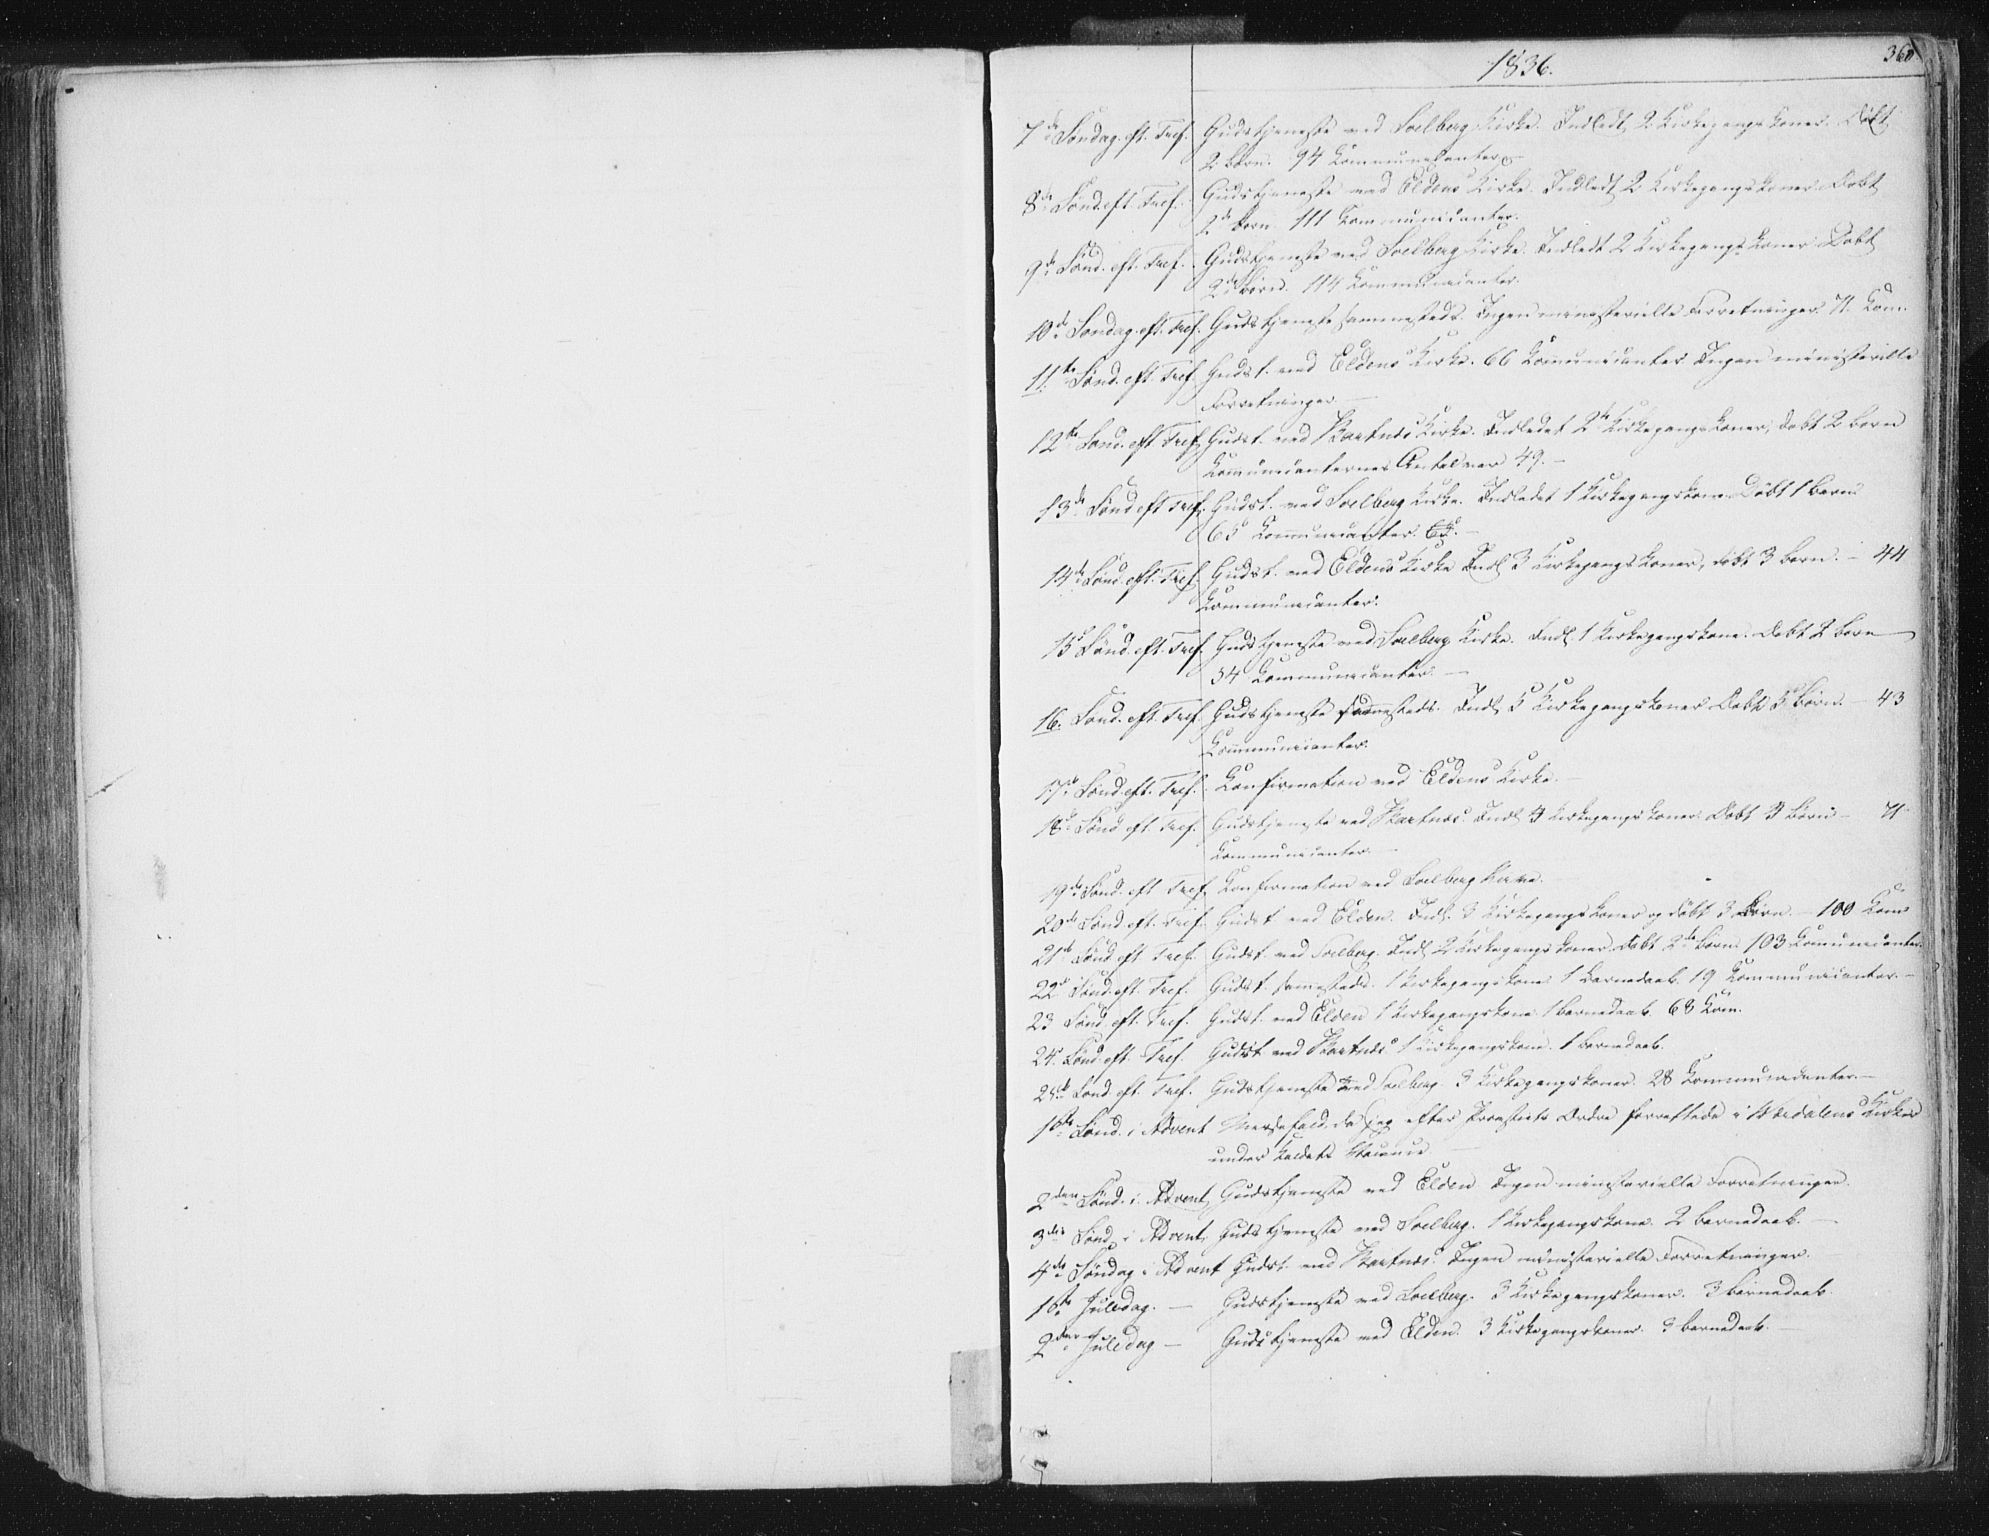 1836.
360
7de Søndag eft. Tref. Gudstjeneste ved Solberg Kirke. Indledt 2 Kirkegangskoner. Døbt
2 børn. 94 Communicanter.
8de Sønd. eft. Tref. Gudstjeneste ved Eldens Kirke. Indledt 2 Kirkegangskoner. Døbt
2de børn. 111 Communicanter.
9de Sønd. eft. Tref. Gudstjeneste ved Soelberg Kirke. Indledt 2 Kirkegangskoner. Døbt
2de Børn. 114 Communicanter.
10de Søndag eft. Tref. Gudstjeneste sammesteds. Ingen ministerielle Forretninger. 71 Com.
11te Sønd. eft. Tref. Gudst. ved Eldens Kirke. 66 Communicanter. Ingen ministerielle
Forretninger. —
12te Sønd. eft. Tref. Gudst. ved Kirke. Indledet 2de Kirkegangskoner, døbt 2 børn
Communicanternes Antal var 49. —
13de Sønd eft Tref. Gudst. ved Soelberg Kirke. Indledet 1 Kirkegangskone. Døbt 1 barn
65 Communicanter. —
14de Sønd. eft. Tref. Gudst. ved Eldens Kirke Indl. 3 Kirkegangskoner, døbt 3 børn. — 44
Communicanter.
15 Sønd. eft. Tref. Gudstjeneste ved Soelberg Kirke. Indl. 1 Kirkegangskone. Døbt 2 børn
34 Communicanter. —
16. Sønd. eft. Tref. Gudstjeneste samesteds. Indl. 5 Kirkegangskoner Døbt 5 børn. — 43
Communicanter.
17de Sønd. eft. Tref. Confirmation ved Eldens Kirke. —
18de Sønd eft. Tref. Gudstjeneste ved Indl. 4 Kirkegangskoner. Døbt børn — 71
Communicanter. —
19de Sønd. eft Tref. Confirmation ved Soelberg Kirke. —
20de Sønd. eft. Tref. Gudst. ved Elden. Indl. 3 Kirkegangskoner og døbt 3 Børn. — 100 Com
21de Sønd. eft Tref. Gudst. ved Soelberg. Indl. 2 Kirkegangskoner. Døbt 2de børn. 103 Communicanter.
22de Sønd. eft. Tref. Gudst. samesteds. 1 Kirkegangskone. 1 barnedaab. 19 Communicanter. —
23 Sønd. eft. Tref. Gudst. ved Elden 1 Kirkegangskone. 1 barnedaab. 68 Com.
24. Sønd. eft. Tref. Gudst. ved 1 Kirkegangskone. 1 barnedaab.
25de Sønd eft. Tref. Gudstjeneste ved Soelberg. 3 Kirkegangskoner. 28 Communicanter. —
1ste Sønd. i Advent Messefald, da jeg efter Provstiets Ordre forrettede i Kirke
under Kaldets Vacance —
2den Sønd. i Advent, Gudstjeneste ved Elden. Ingen ministerielle Forretninger.
3die Sønd. i Advent, Gudstjeneste ved Soelberg. 1 Kirkegangskone. 2 barnedaab. —
4de Søndag i Advent Gudst. ved Ingen ministerielle Forretninger.
1ste Juledag. — Gudstjeneste ved Soelberg. 3 Kirkegangskoner. 3 barnedaab.
2den Juledag — Gudstjeneste ved Elden. 3 Kirkegangskoner. 3 barnedaab. —